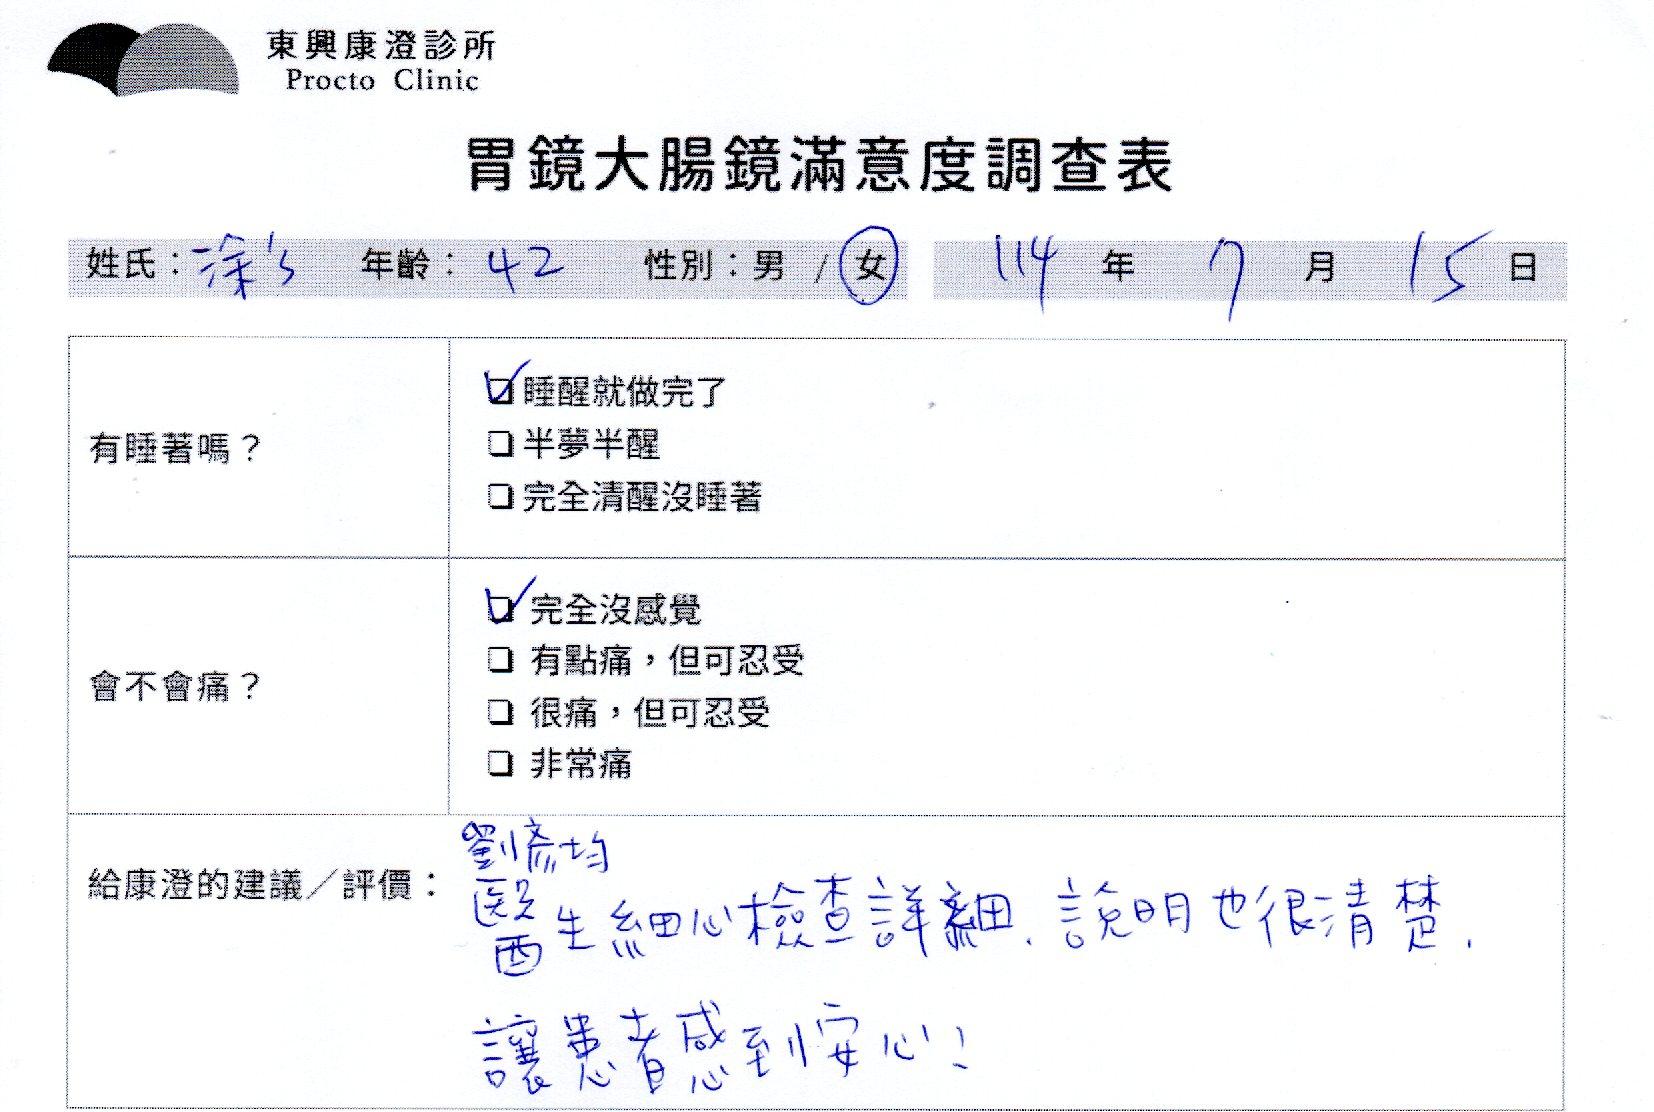 東興康澄診所
Procto Clinic
胃鏡大腸鏡滿意度調查表
姓氏：涂's 年齡：42 性別：男 / 女 114 年 7 月 15 日
有睡著嗎？
睡醒就做完了
半夢半醒
完全清醒沒睡著
會不會痛？
完全沒感覺
有點痛，但可忍受
很痛，但可忍受
非常痛
給康澄的建議／評價：
劉彥均
醫生細心檢查詳細. 說明也很清楚.
讓患者感到安心！